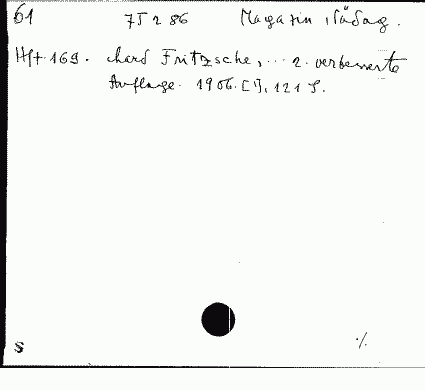 61 7J 2 86 Magazin f. Pädag.
Hft 169. chard Fritzsche, ... 2. verbesserte
Auflage. 1906. [1], 121 S.
S ./.